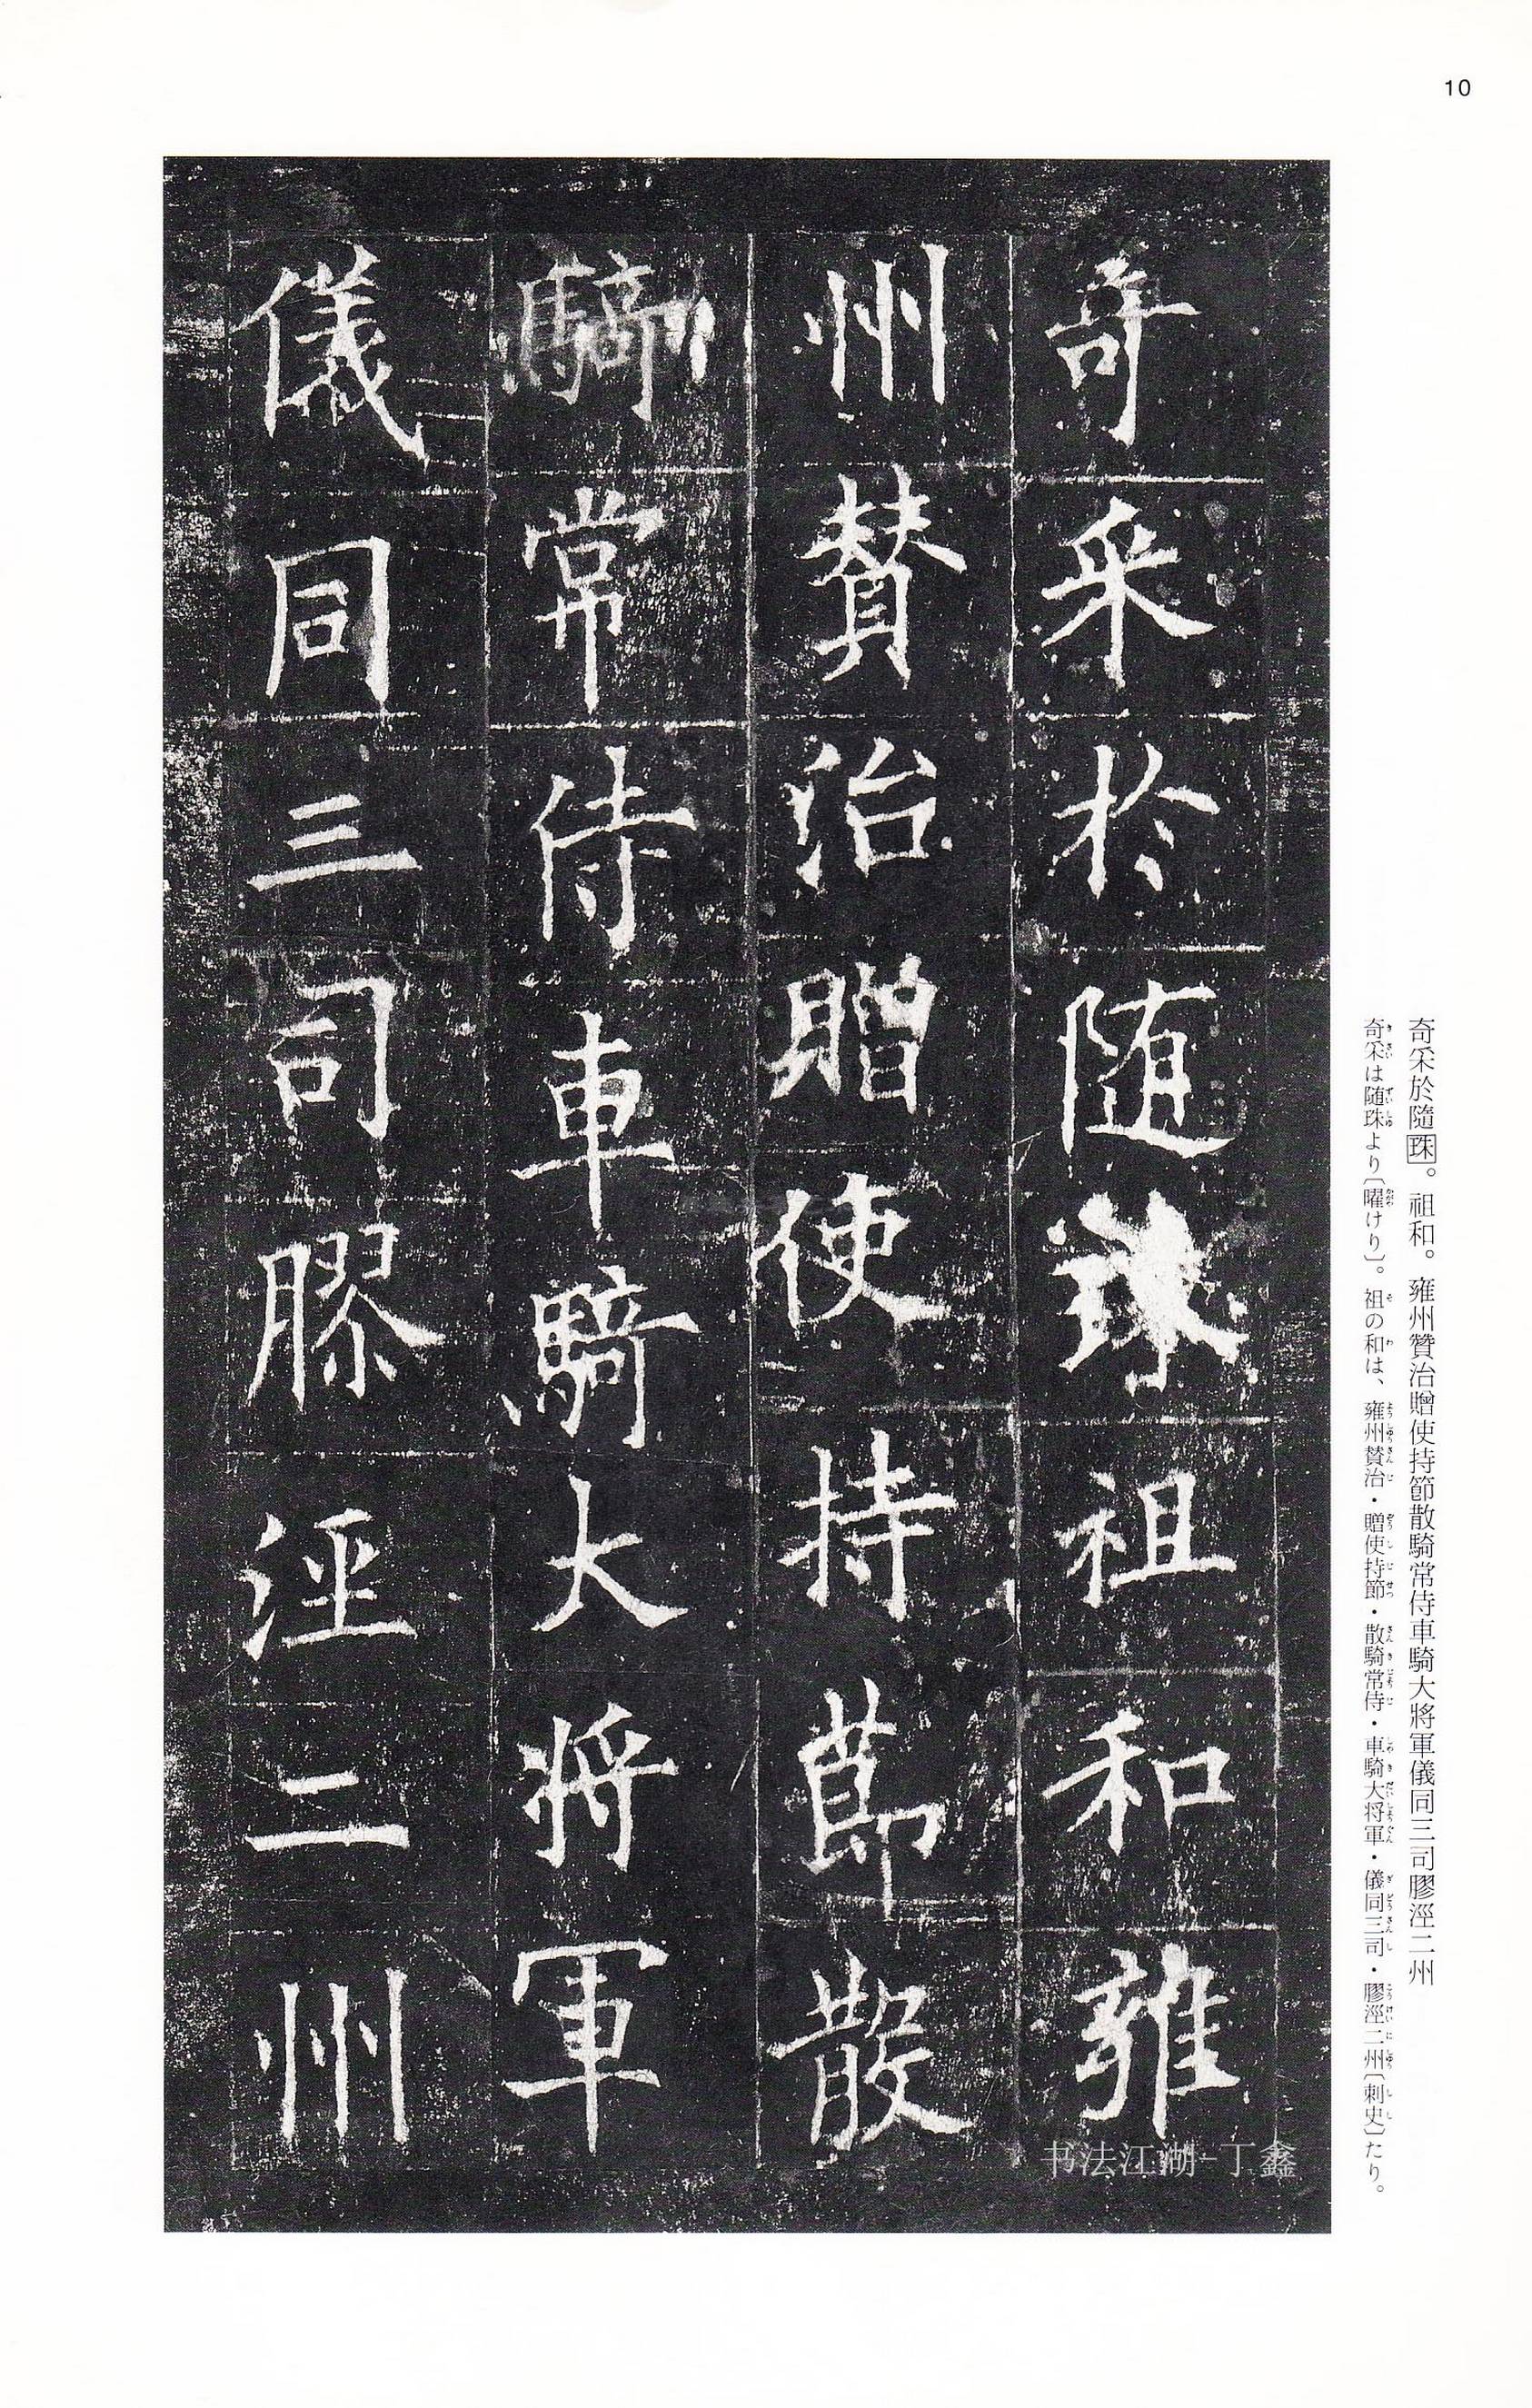 10
奇采於隨珠。祖和。雍州贊治贈使持節散騎常侍車騎大將軍儀同三司膠涇二州
奇采は随珠より〔曜けり〕。祖の和は、雍州賛治・贈使持節・散騎常侍・車騎大将軍・儀同三司・膠涇二州〔刺史〕たり。
奇采於随珠祖和雍
州賛治贈使持節散
騎常侍車騎大将軍
儀同三司膠涇二州
书法江湖-丁鑫